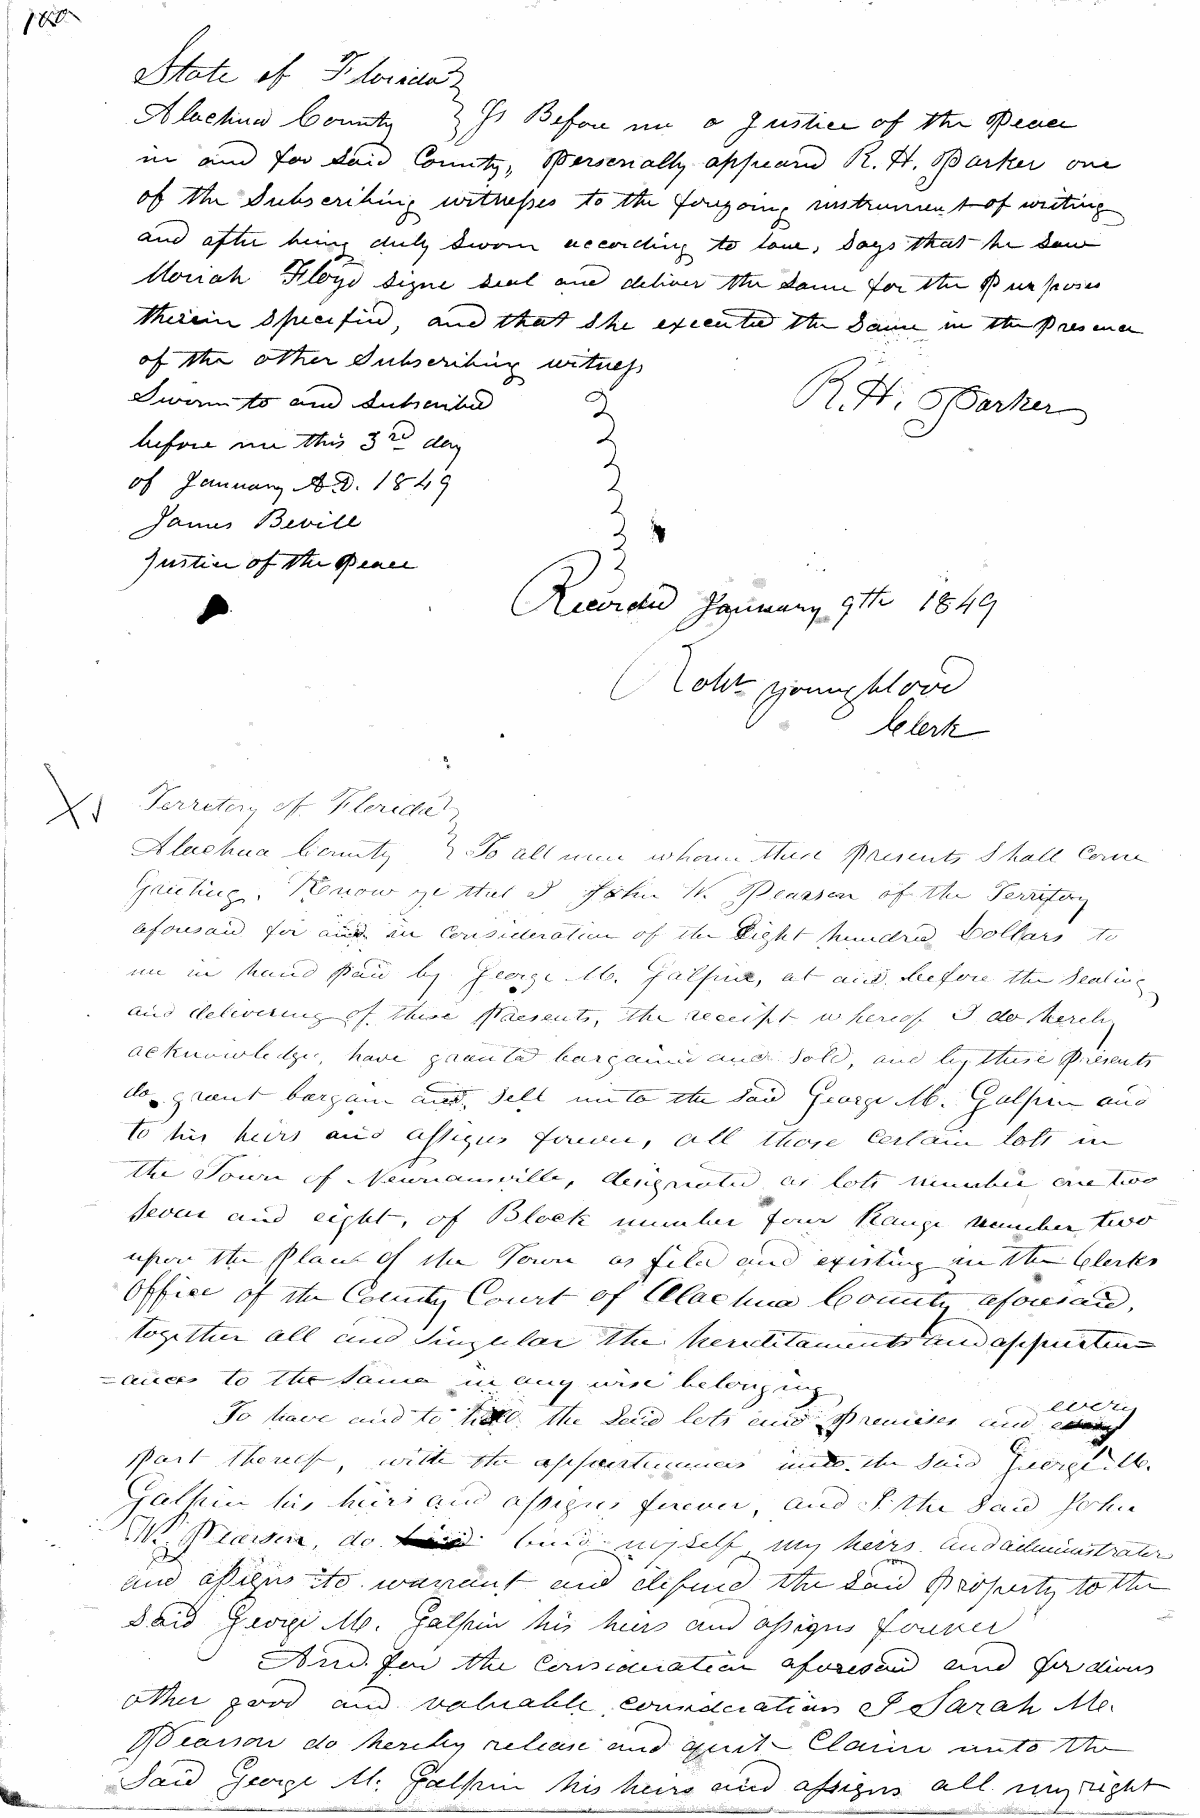 100
State of Florida
Alachua County } Ss Before me a Justice of the Peace
in and for Said County, Personally appeared R. H. Parker one
of the Subscribing witnesses to the foregoing instrument of writing
and after being duly Sworn according to law, Says that he Saw
Moriah Floyd signe seal and deliver the same for the Purposes
therein Specified, and that She executed the Same in the Presence
of the other Subscribing witness
R. H. Parker
Sworn to and Subscribed
before me this 3rd day
of January A.D. 1849
James Bevill
Justice of the Peace
Recorded January 9th 1849
Robt Youngblood
Clerk
Territory of Florida
Alachua County } To all men whom these Presents Shall Come
Greeting. Know ye that I John W. Pearson of the Territory
aforesaid for and in consideration of the Eight hundred Dollars to
me in hand Paid by George M. Galpin, at and before the Sealing
and delivering of these Presents, the receipt whereof I do hereby
acknowledge, have granted bargained and Sold, and by these Presents
do grant bargain and Sell unto the Said George M. Galpin and
to his heirs and assigns forever, all those certain lots in
the Town of Newnansville, designated as lots number one two
Seven and eight, of Block number four Range number two
upon the Plan of the Town as filed and existing in the Clerks
Office of the County Court of Alachua County aforesaid,
together all and Singular the hereditaments and appurten=
=ances to the Same in any wise belonging
To have and to hold the Said lots and Premises and every
Part thereof, with the appurtenances unto the Said George M.
Galpin his heirs and assigns forever, and I the Said John
W. Pearson, do bind myself my heirs and administrators
and assigns to warrant and defend the Said Property to the
Said George M. Galpin his heirs and assigns forever
And for the consideration aforesaid and for divers
other good and valuable considerations I Sarah M.
Pearson do hereby release and quit Claim unto the
Said George M. Galpin his heirs and assigns all my right